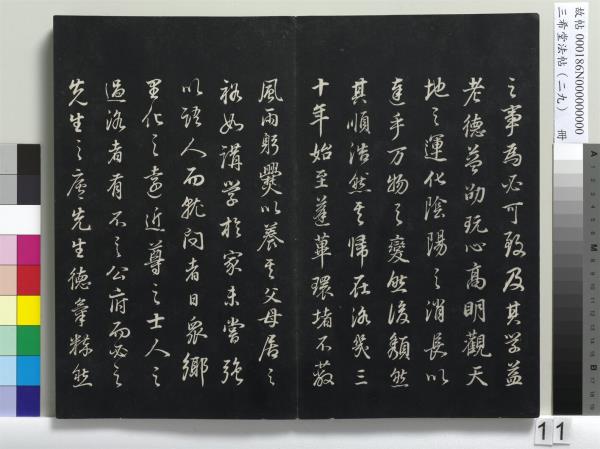 故帖 000186N000000000
三希堂法帖（二九） 冊
之事為必可致及其學益
老德益劭玩心高明觀天
地之運化陰陽之消長以
達乎万物之變然後頹然
其順浩然其歸在洛幾三
十年始至蓬蓽環堵不蔽
風雨躬爨以養其父母居之
裕如講學於家未嘗強
以語人而就問者日眾鄉
里化之遠近尊之士人之
過洛者有不之公府而必之
先生之廬先生德氣粹然
11